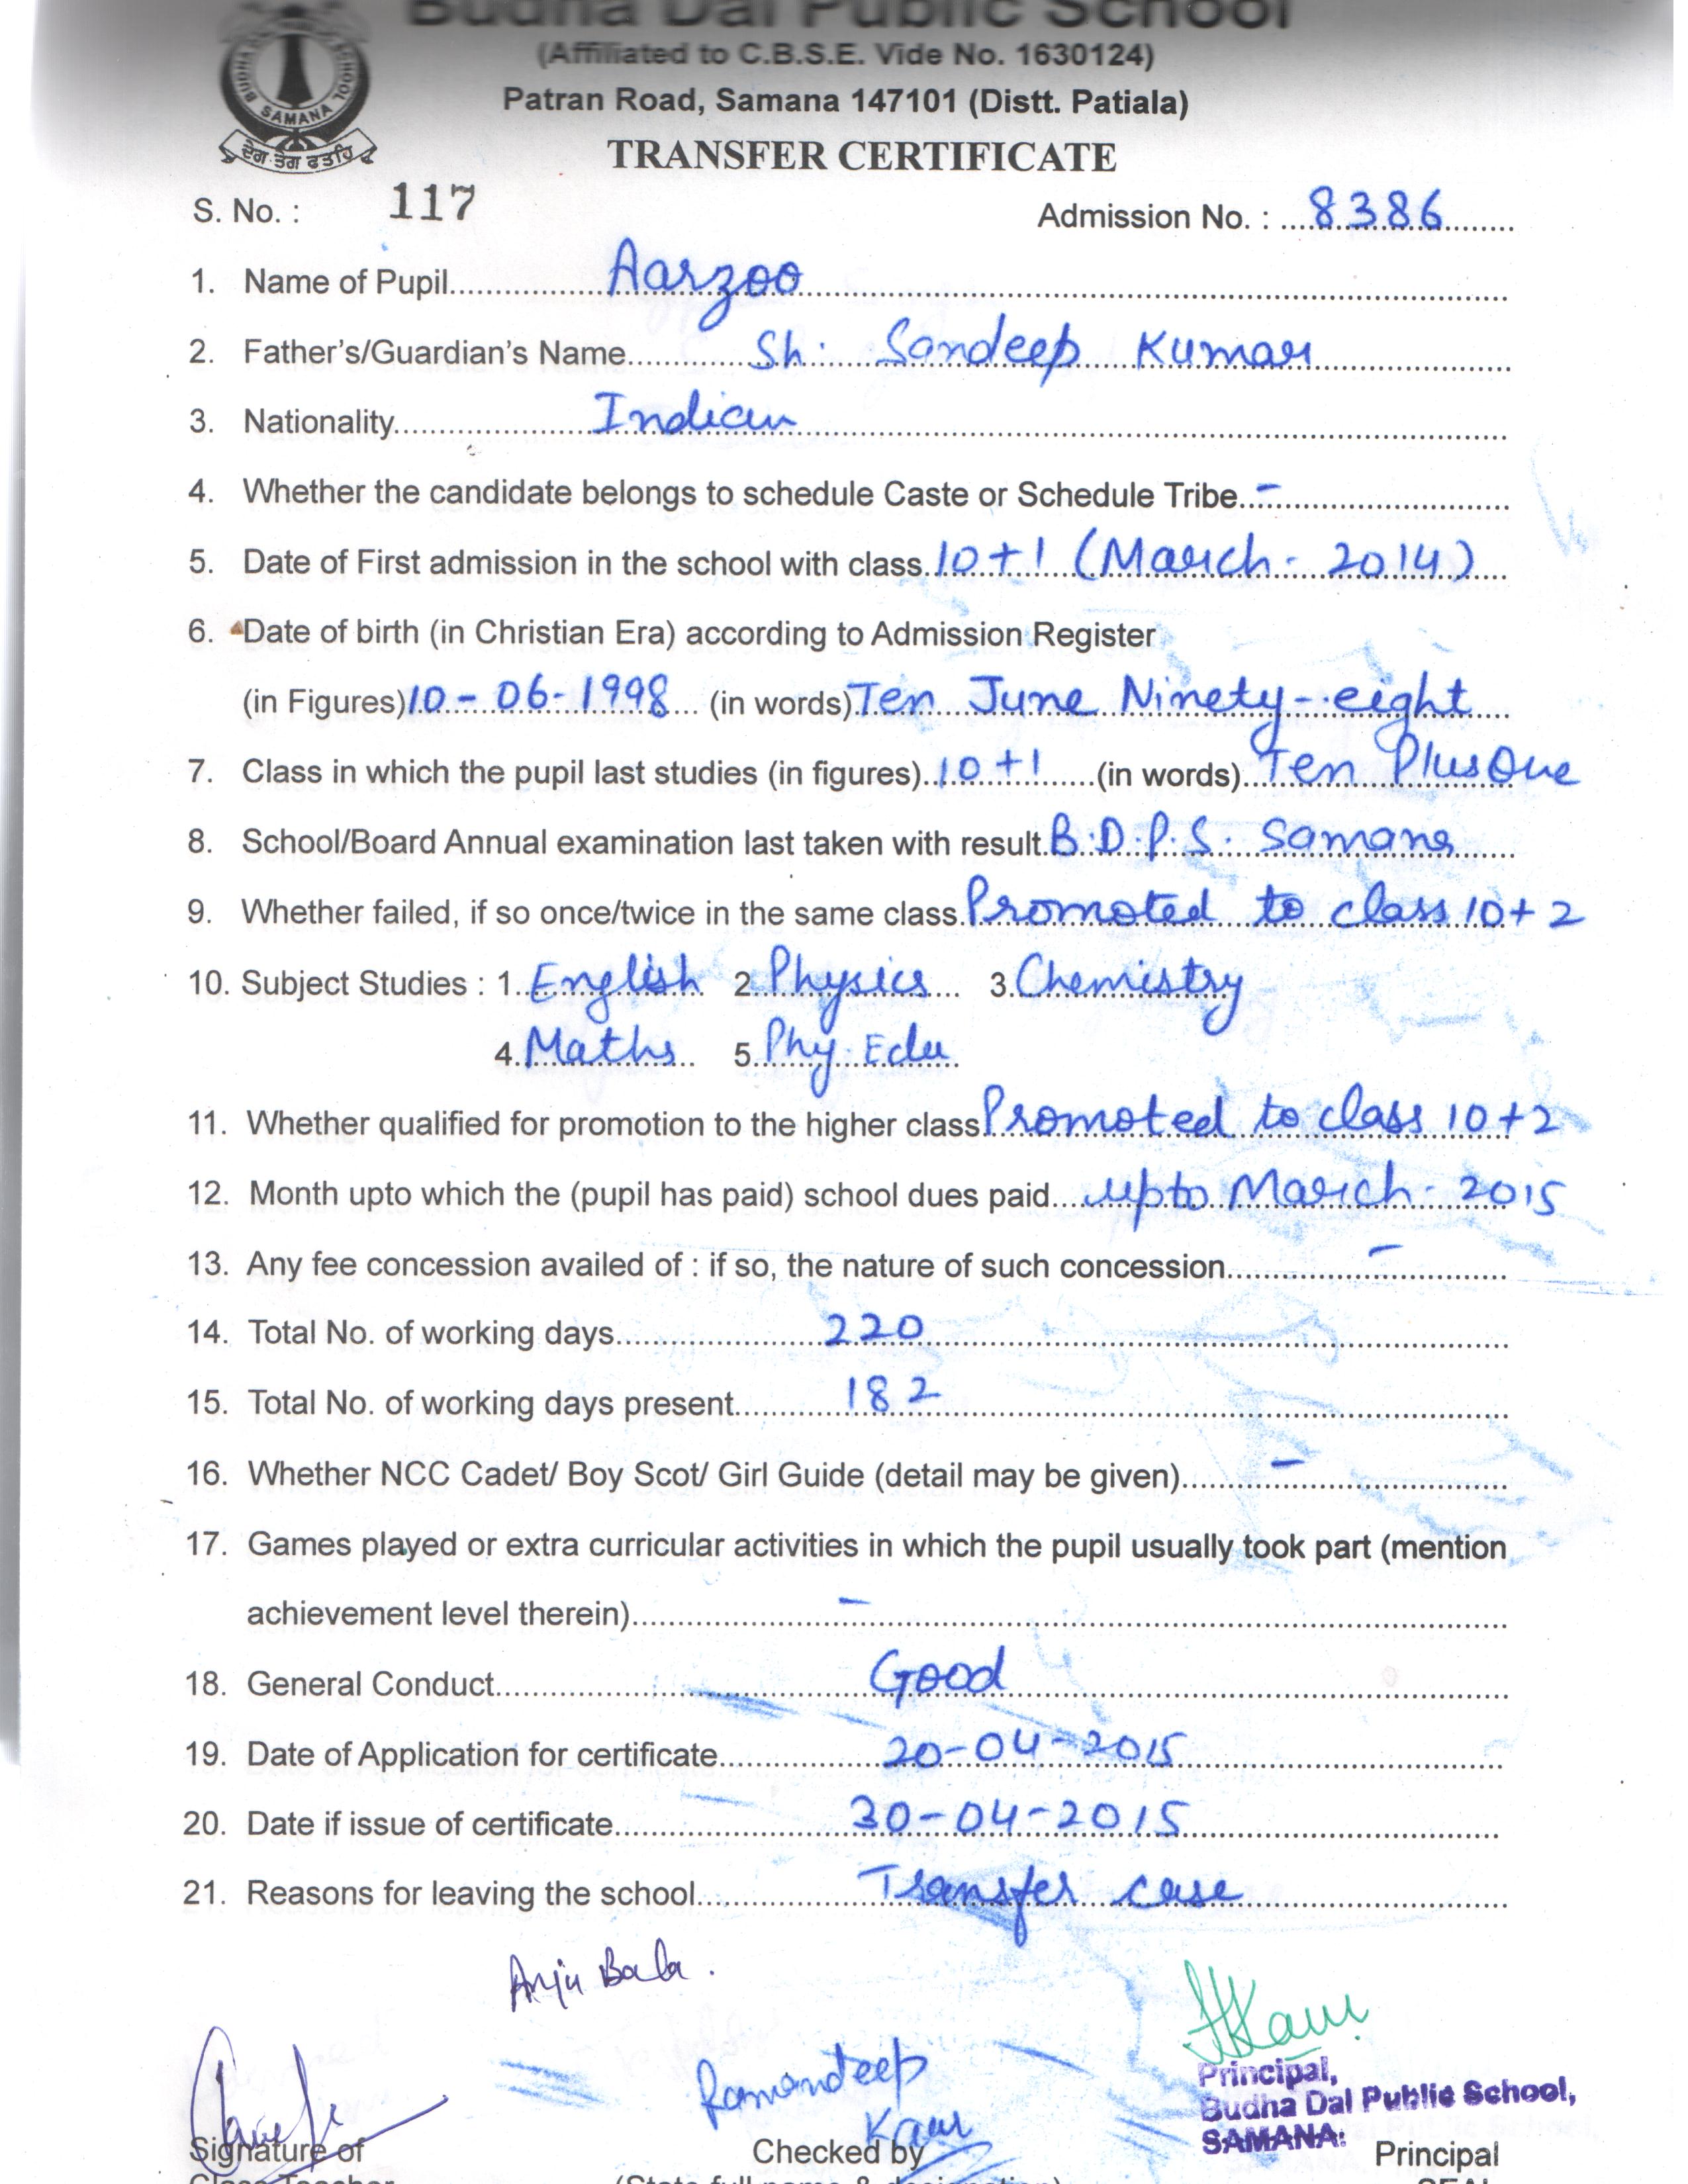 Budha Dal Public School
(Affiliated to C.B.S.E. Vide No. 1630124)
Patran Road, Samana 147101 (Distt. Patiala)
SAMANA
ਦੇਗ ਤੇਗ ਫਤਹਿ
TRANSFER CERTIFICATE
S. No. : 117 Admission No. : 8386
1. Name of Pupil Aarzoo
2. Father's/Guardian's Name Sh. Sandeep Kumar
3. Nationality Indian
4. Whether the candidate belongs to schedule Caste or Schedule Tribe -
5. Date of First admission in the school with class 10+1 (March - 2014)
6. Date of birth (in Christian Era) according to Admission Register
(in Figures) 10-06-1998 (in words) Ten June Ninety-eight
7. Class in which the pupil last studies (in figures) 10+1 (in words) Ten Plus One
8. School/Board Annual examination last taken with result B.D.P.S. Samana
9. Whether failed, if so once/twice in the same class Promoted to class 10+2
10. Subject Studies : 1. English 2. Physics 3. Chemistry
4. Maths 5. Phy. Edu
11. Whether qualified for promotion to the higher class Promoted to class 10+2
12. Month upto which the (pupil has paid) school dues paid upto March - 2015
13. Any fee concession availed of : if so, the nature of such concession -
14. Total No. of working days 220
15. Total No. of working days present 182
16. Whether NCC Cadet/ Boy Scot/ Girl Guide (detail may be given) -
17. Games played or extra curricular activities in which the pupil usually took part (mention
achievement level therein) -
18. General Conduct Good
19. Date of Application for certificate 20-04-2015
20. Date if issue of certificate 30-04-2015
21. Reasons for leaving the school Transfer case
Anju Bala.
Ramandeep
Kaur
Principal,
Budha Dal Public School,
SAMANA.
Signature of Checked by Principal
Class Teacher (State full name & designation) SEAL